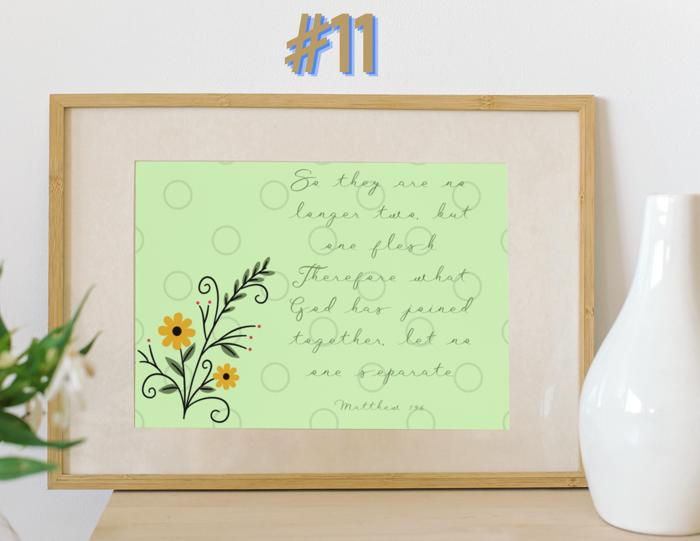 #11
So they are no
longer two, but
one flesh
Therefore what
God has joined
together, let no
one separate
Matthew 19:6